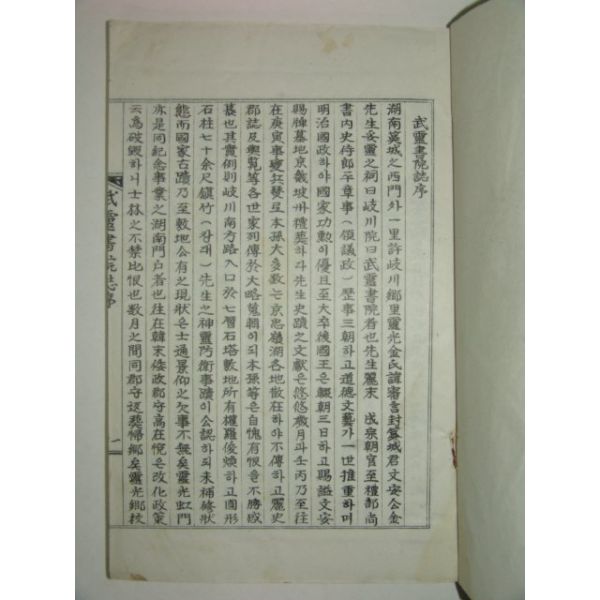 武靈書院誌序
湖南筽城之西門外一里許岐川鄉里靈光金氏諱審言封筽城君文安公金
先生妥靈之祠曰岐川院曰武靈書院者也先生麗末 成宗朝官至禮部尚
書內史侍郎平章事(領議政)歷事三朝하고道德文藝가一世推重하며
明治國政하야國家功勳이優且至大卒後國王은輟朝三日하고賜謚文安
賜牌墓地京畿坡州禮葬하다先生史蹟之文獻은悠悠歲月과壬丙乃至往
在庚寅事變兵燹로本孫大多數는京忠嶺湖各地散在하야不傳하고麗史
郡誌及輿覽等各世家列傳於大略蒐輯이되本孫等은自愧有恨을不勝感
慕也其實例則岐川南方路入口於七層石塔敷地所有權羅優煥하고圓形
石柱七十余尺鎮竹(장대)先生之神靈防衛事蹟이公認하되未補修狀
態而國家古蹟乃至敷地公有之現狀은士通景仰之欠事不無矣靈光虹門
亦是同紀念事業之湖南門戶者也往在韓末倭政郡守高在悅은改化政策
云為破毀하니士林之不禁悲恨也数月之間同郡守返葬歸鄉矣靈光鄉校
武靈書院誌序
一